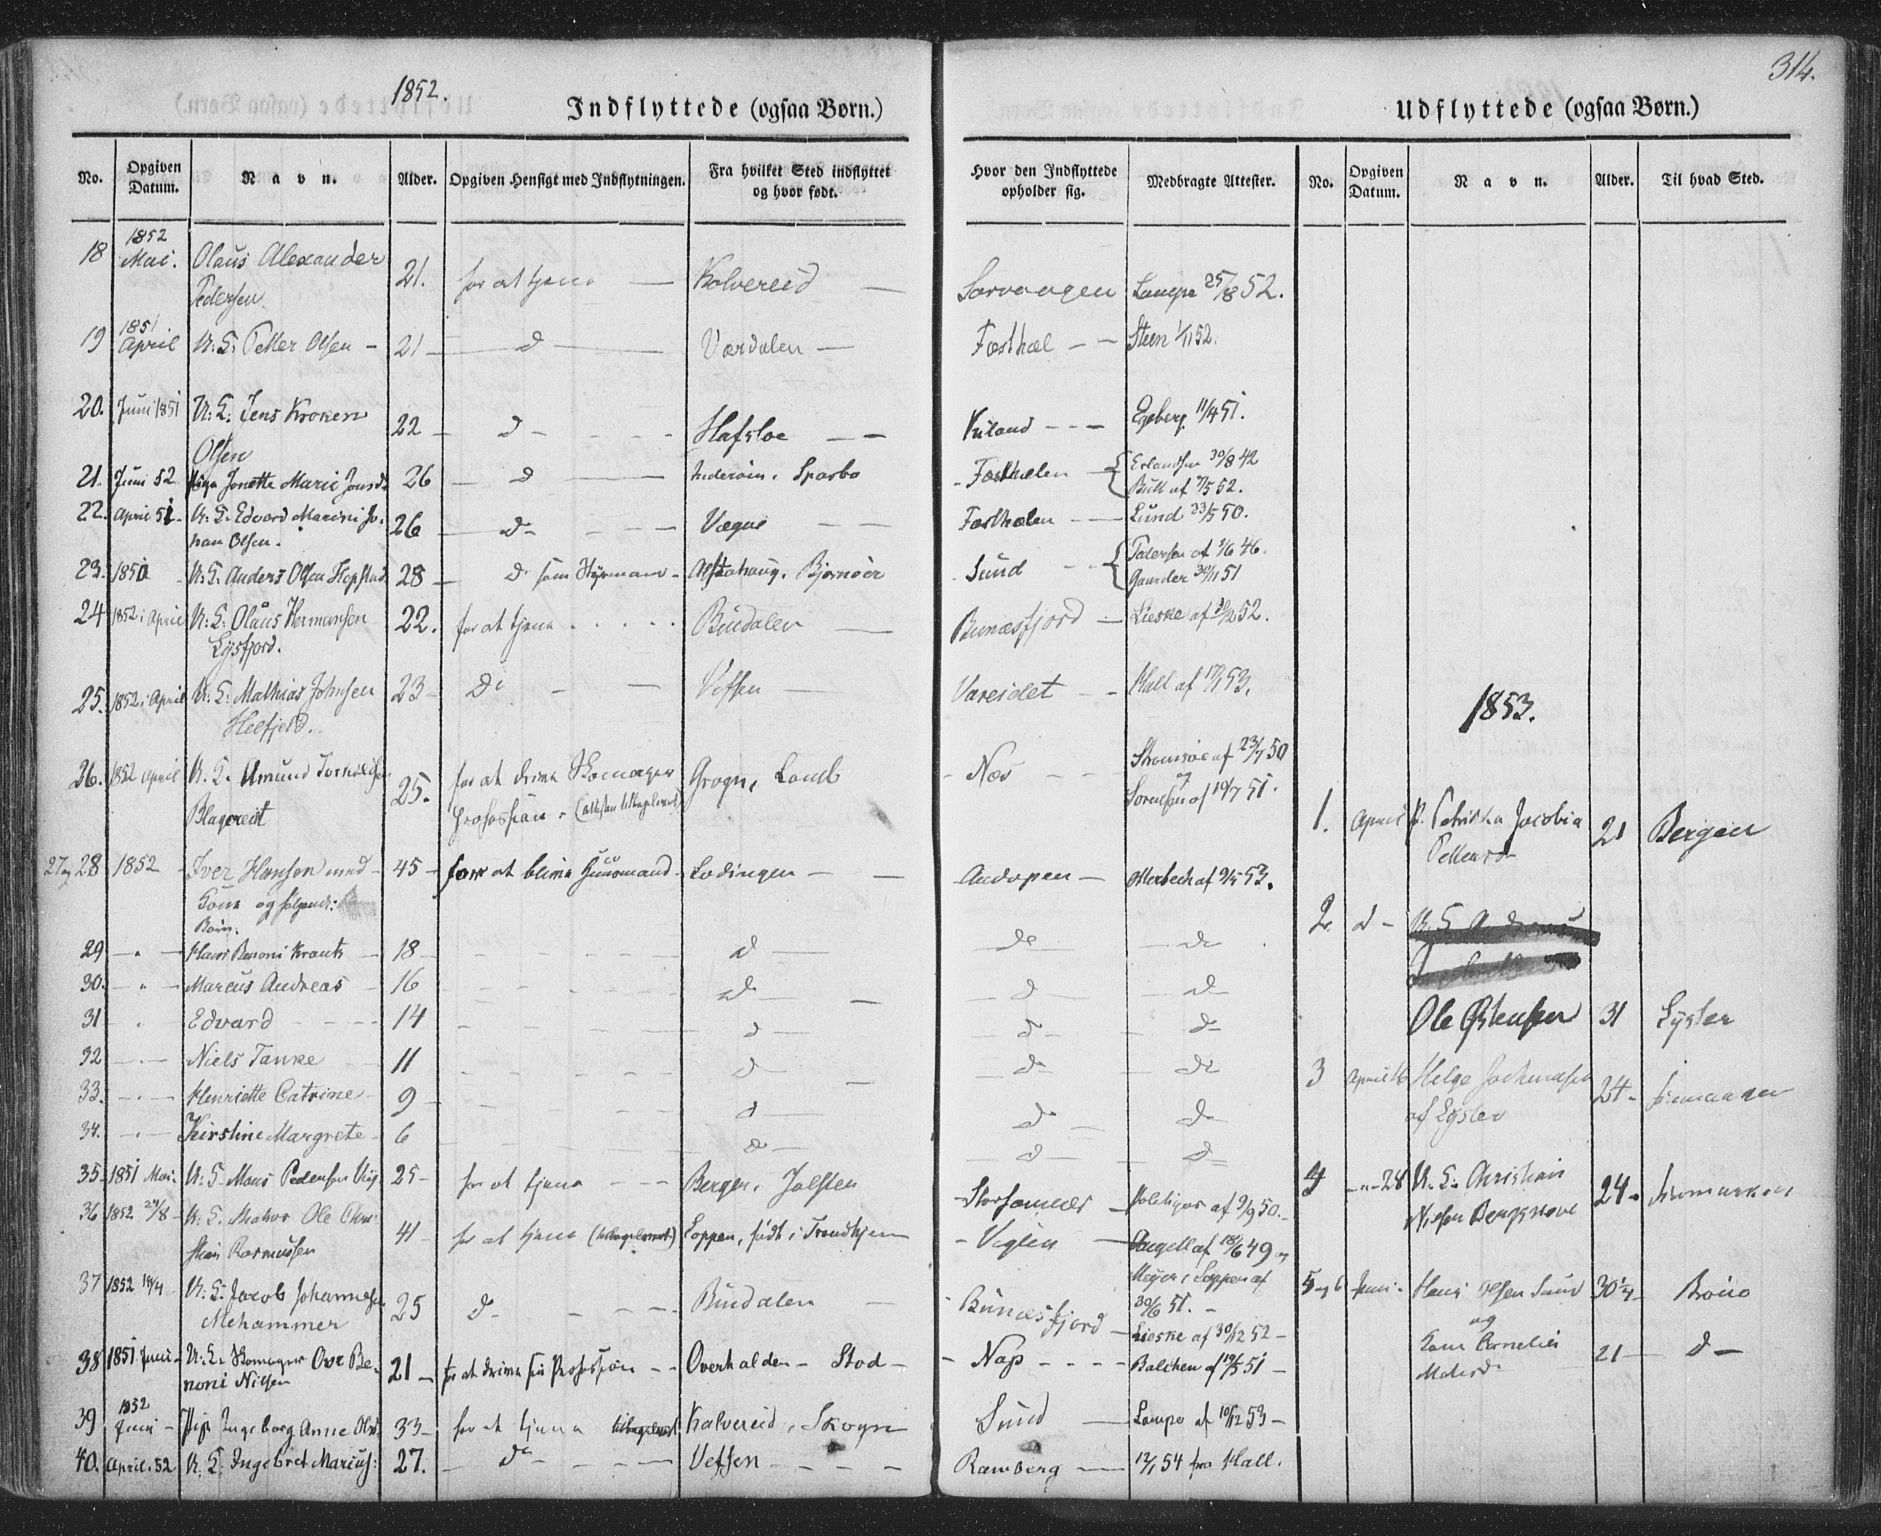 314.
1852.
Indflyttede (ogsaa Børn.)
Udflyttede (ogsaa Børn.)
No. Opgiven Datum. Navn. Alder. Opgiven Hensigt med Indflytningen. Fra hvilket Sted indflyttet og hvor født. Hvor den Indflyttede opholder sig. Medbragte Attester. No. Opgiven Datum. Navn. Alder. Til hvad Sted.
18 1852 Mai. Olaus Alexander Pedersen 21. for at tjene Kolvereid Sørvaagen Lampe 25/8 52.
19 1851 April U: K: Petter Olsen 21 d Værdalen Festhæl Steen 1/11 52.
20. Juni 1851 U: K: Jens Kroken Olsen 22 d Hafsloe Egeberg 11/4 51.
21. Juni 52 Pige Jonette Marie 26 d Inderøin. Sparbo Festhælen Erlandsen 30/8 42 Bull af 7/5 52.
22. April 51 U: K: Edvard Marini Johan Olsen. 26 d Vegøe Festhælen Lund 23/5 50.
23. 1850 U: K: Anders Olsen Hopstad 28 d som Styrmand Alstahaug. Bjørnøer Sund Pedersen af 1/6 46. 30/11 51
24 1852 i April U: K: Olaus Hermansen Lysfjord. 22. for at tjene Bindalen Bunæsfjord Lieske af 52.
25. 1852 i April U: K: Mathias Johnsen 23 d Vefsen Vareidet Hall af 17/1 53.
26. 1852 April U: K: Amund 25. for at drive Skomager Profession Lomb Næs Strømsøe af 23/7 50 og Sørensen af 10/7 51.
27 og 28 1852 Iver Hansen med Kone og følgende: Børn. 45 for at blive Huusmand Lødingen Andopen af 9/5 53.
29 Hans Benoni Krantz 18 d do do
30. Marcus Andreas 16 d d d
31 Edvard 14 d d d
32 Niels Tanke 11 d d d
33. Henriette Catrine 9 d d d
34. Kirstine Margrete 6 d d d
35 1851 Mai. U: K: Mons Pedersen 25 for at tjene Bergen. Jølster af 9/9 50.
36 1852 24/8 U: K: Ole Christian Rasmussen 41 for at tjene Loppen, født i Trondhjem Angell af 18/6 49 og Meyer i Loppen af 30/6 51.
37 1852 14/4 U: K: Jacob Johannesen Mehammer 25 d Bindalen Bunæsfjord Lieske af 30/12 52
38 1851 Juni U: K: Skomager Ove Benoni Nilsen 21 for at drive sin Profession Overhalden Stod Nap Balchen af 19/5 51
39 1852 Juni Pige Ingeborg Anne 33 for at tjene Kolvereid, Skogn Sund Lampe af 10/12 53
40. April 52 U: K: Ingebret Marius: 27. d Vefsen Ramberg 12/1 54 fra Hall.
1853.
1. April P. Petrikka Jacobia Pettersd 21 Bergen
2 d Ole Østensen 31 Lyster
3 April 16 Helge af Lyster 24 Finmarken
4 28 U: K: Christian Nilsen Berggrove 24 Finmarken
5 og 6 Juni Hans Olsen Sund 30 1/4 Brønø
og Kone Cornelia 21 d